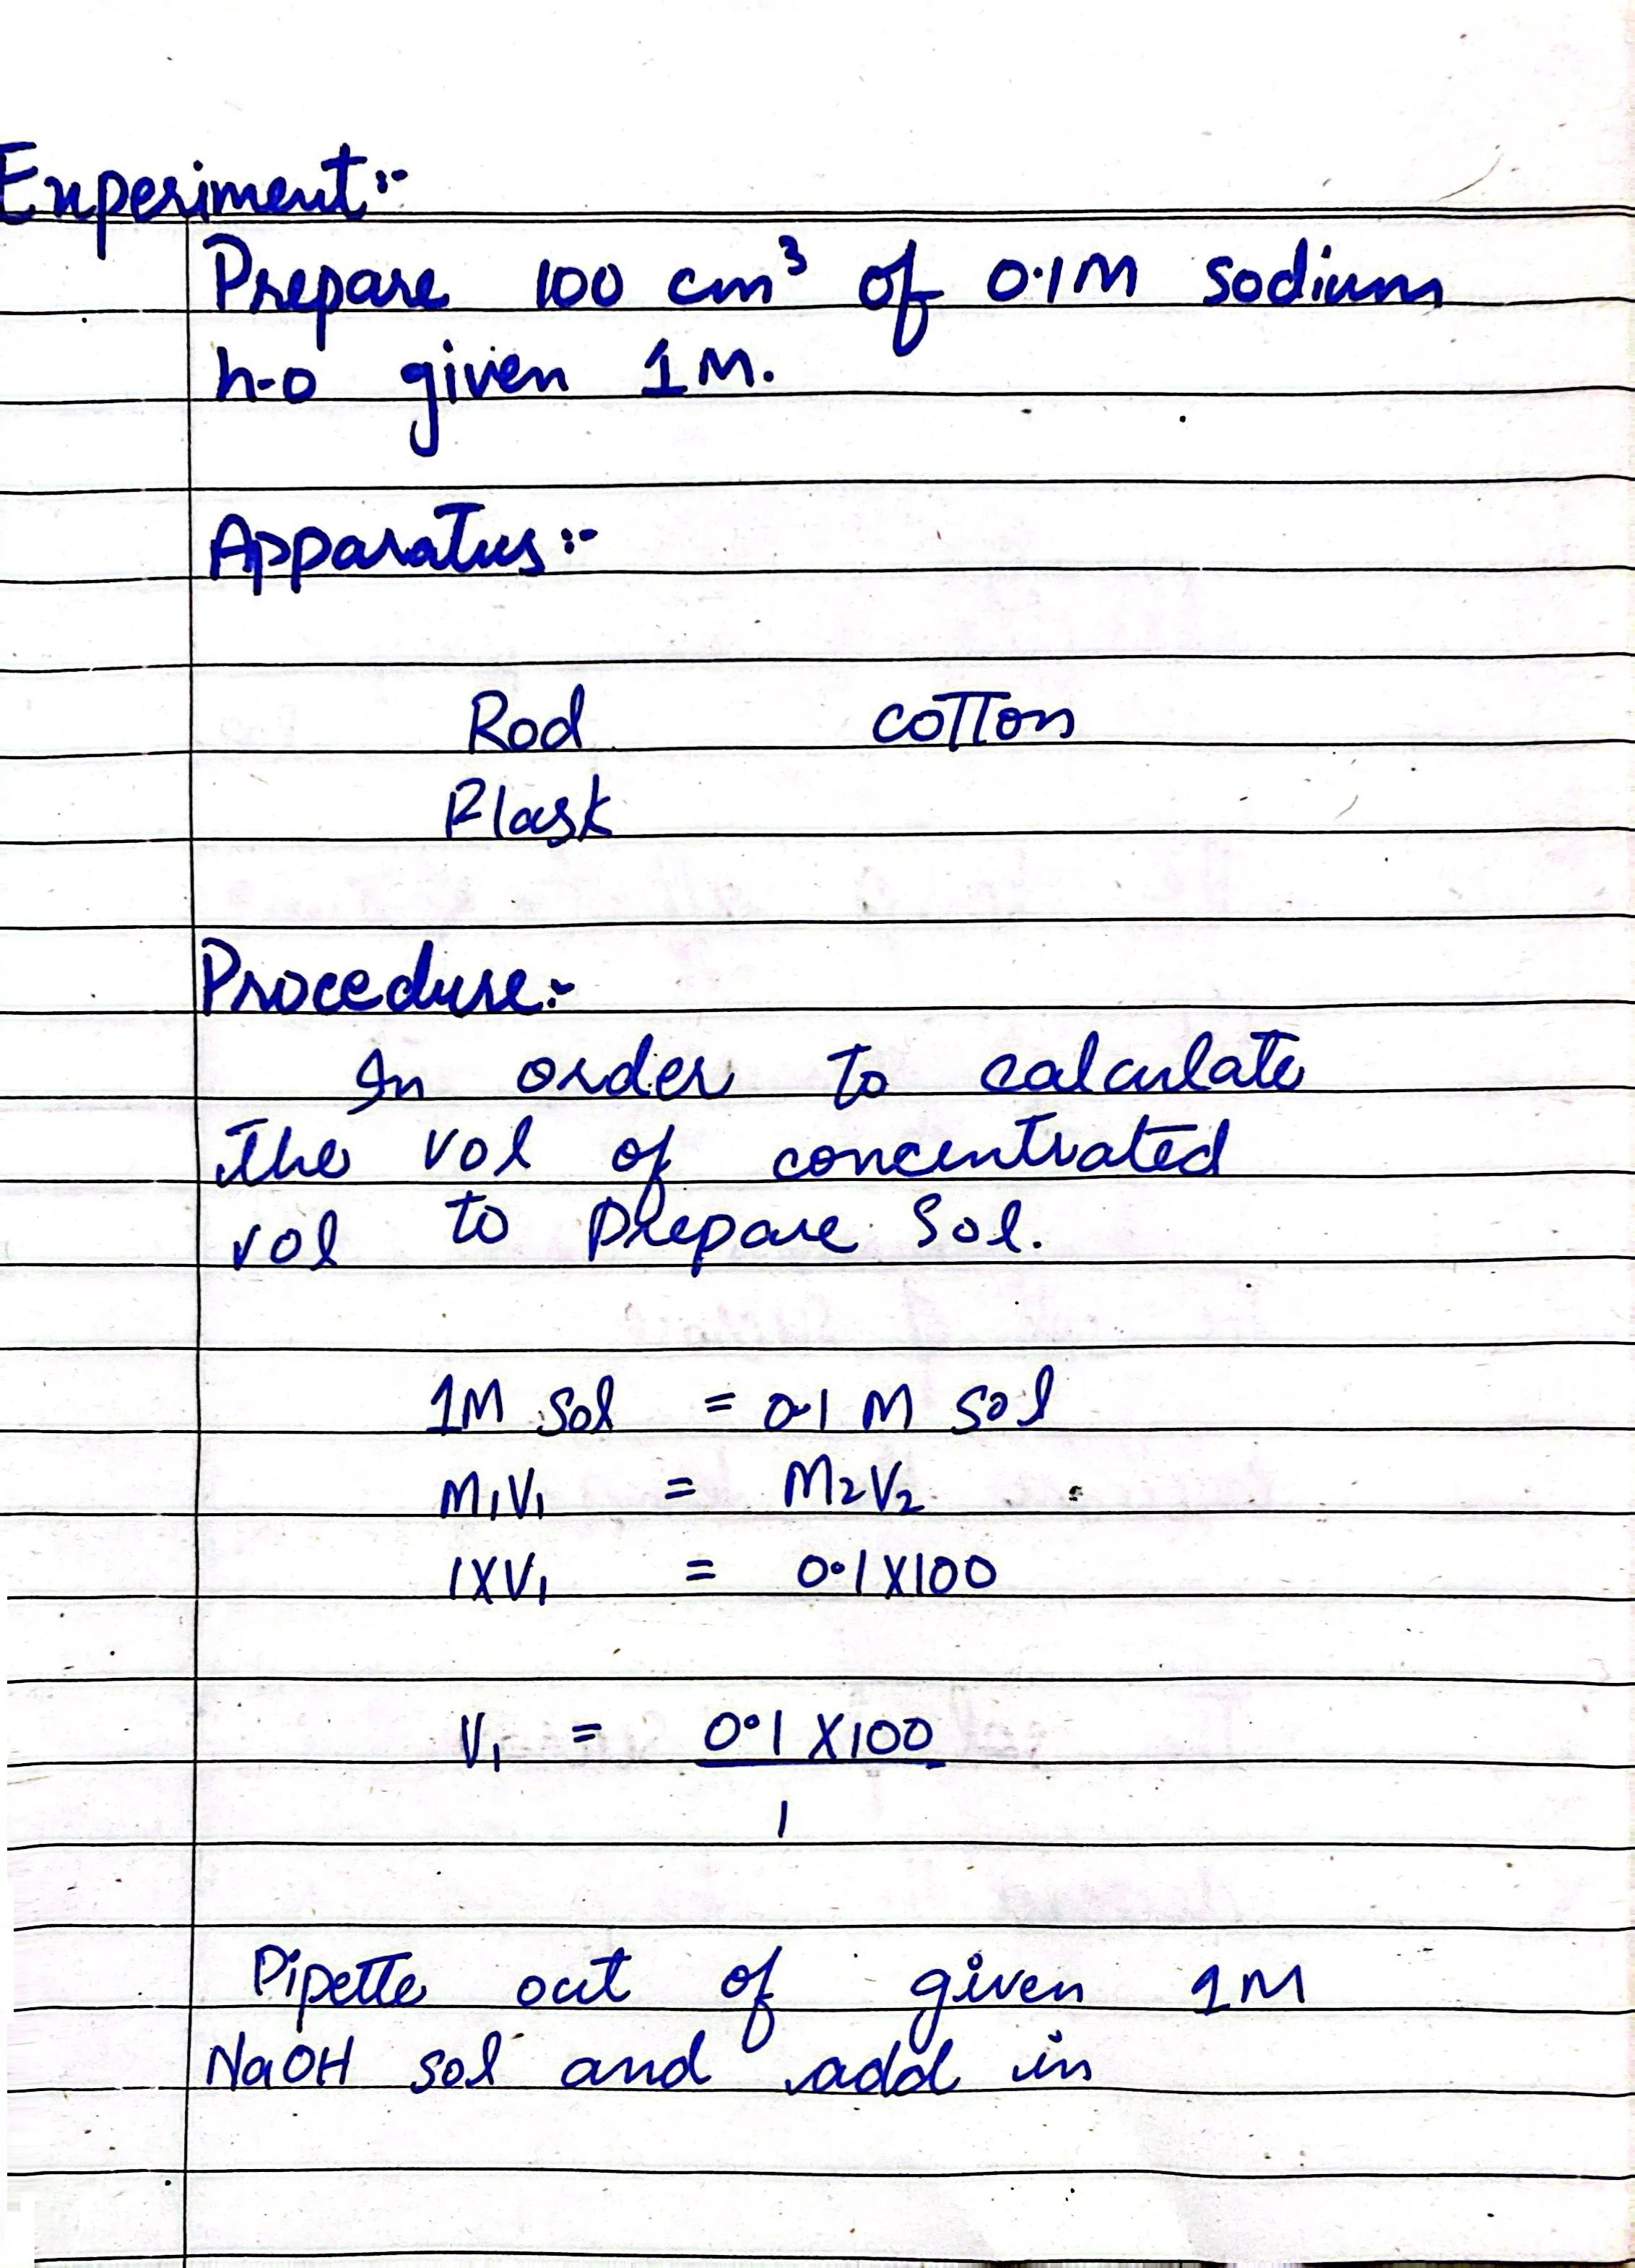 Experiment:-
Prepare 100 cm³ of 0.1M sodium
h-o given 1M.
Apparatus:-
Rod cotton
Flask
Procedure:-
In order to calculate
the vol of concentrated
vol to prepare Sol.
1M sol = 0.1 M sol
M₁V₁ = M₂V₂
1XV₁ = 0.1X100
V₁ = 0.1 X100
1
Pipette out of given 1M
NaOH sol and add in